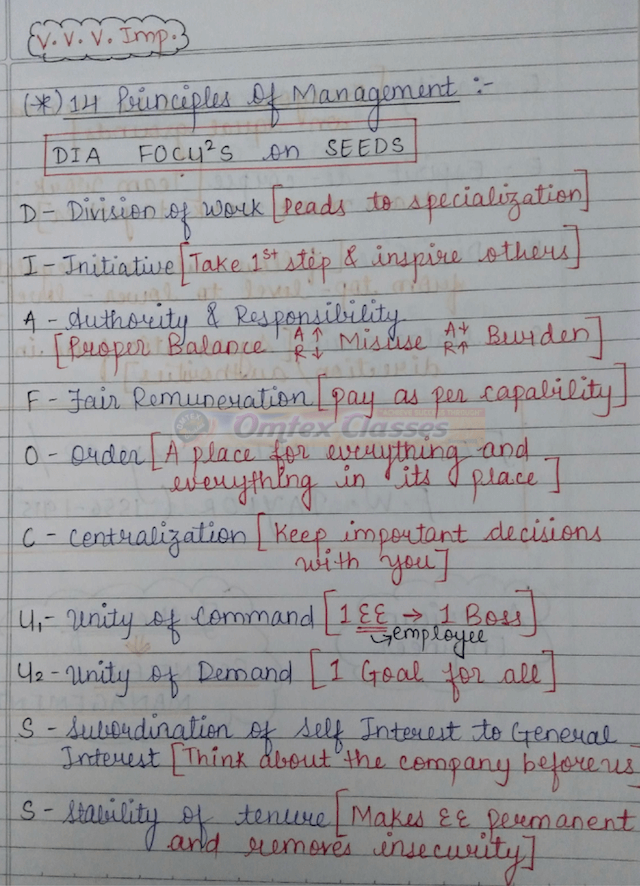 V. V. V. Imp.
(*) 14 Principles of Management :-
DIA FOCU²S on SEEDS
D - Division of work [Leads to specialization]
I - Initiative [Take 1st step & inspire others]
A - Authority & Responsibility
[Proper Balance A↑ R↓ Misuse A↓ R↑ Burden]
F - Fair Remuneration [pay as per capability]
Omtex Classes
O - Order [A place for everything and
everything in its place]
C - Centralization [Keep important decisions
with you]
U₁ - Unity of Command [1 EE → 1 Boss]
↳employee
U₂ - Unity of Demand [1 Goal for all]
S - Subordination of Self Interest to General
Interest [Think about the company before us
S - Stability of tenure [Makes EE permanent
and removes insecurity]